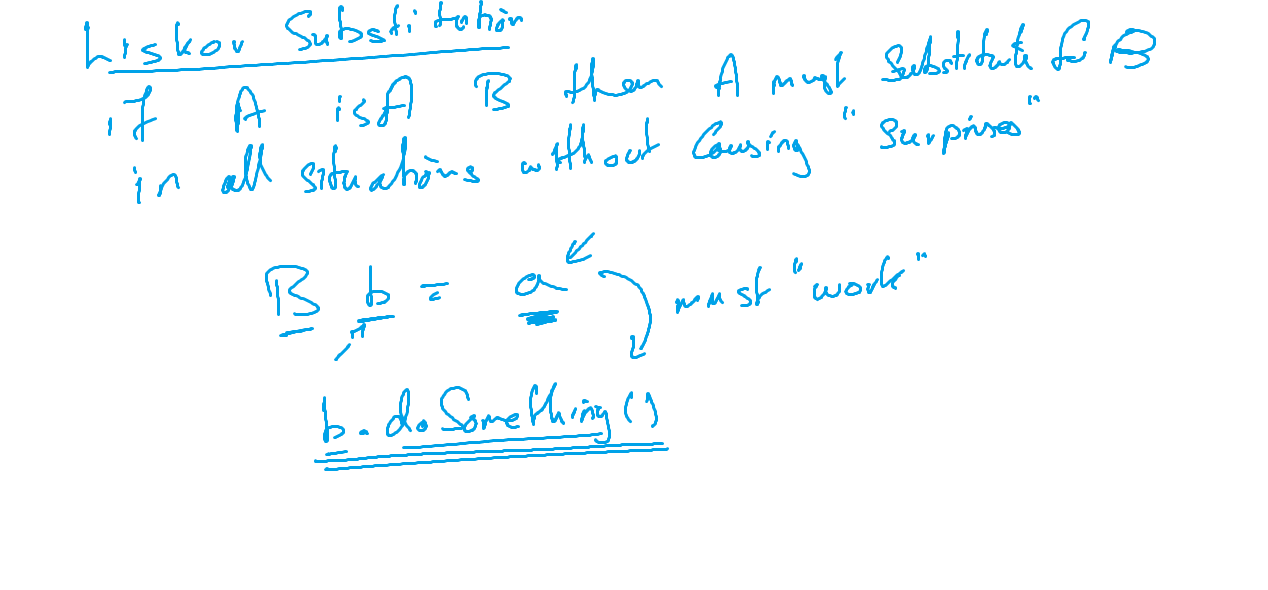 Liskov Substitution
if A isA B then A must Substitute for B
in all situations without Causing "Surprises"
B b = a must "work"
b.doSomething()